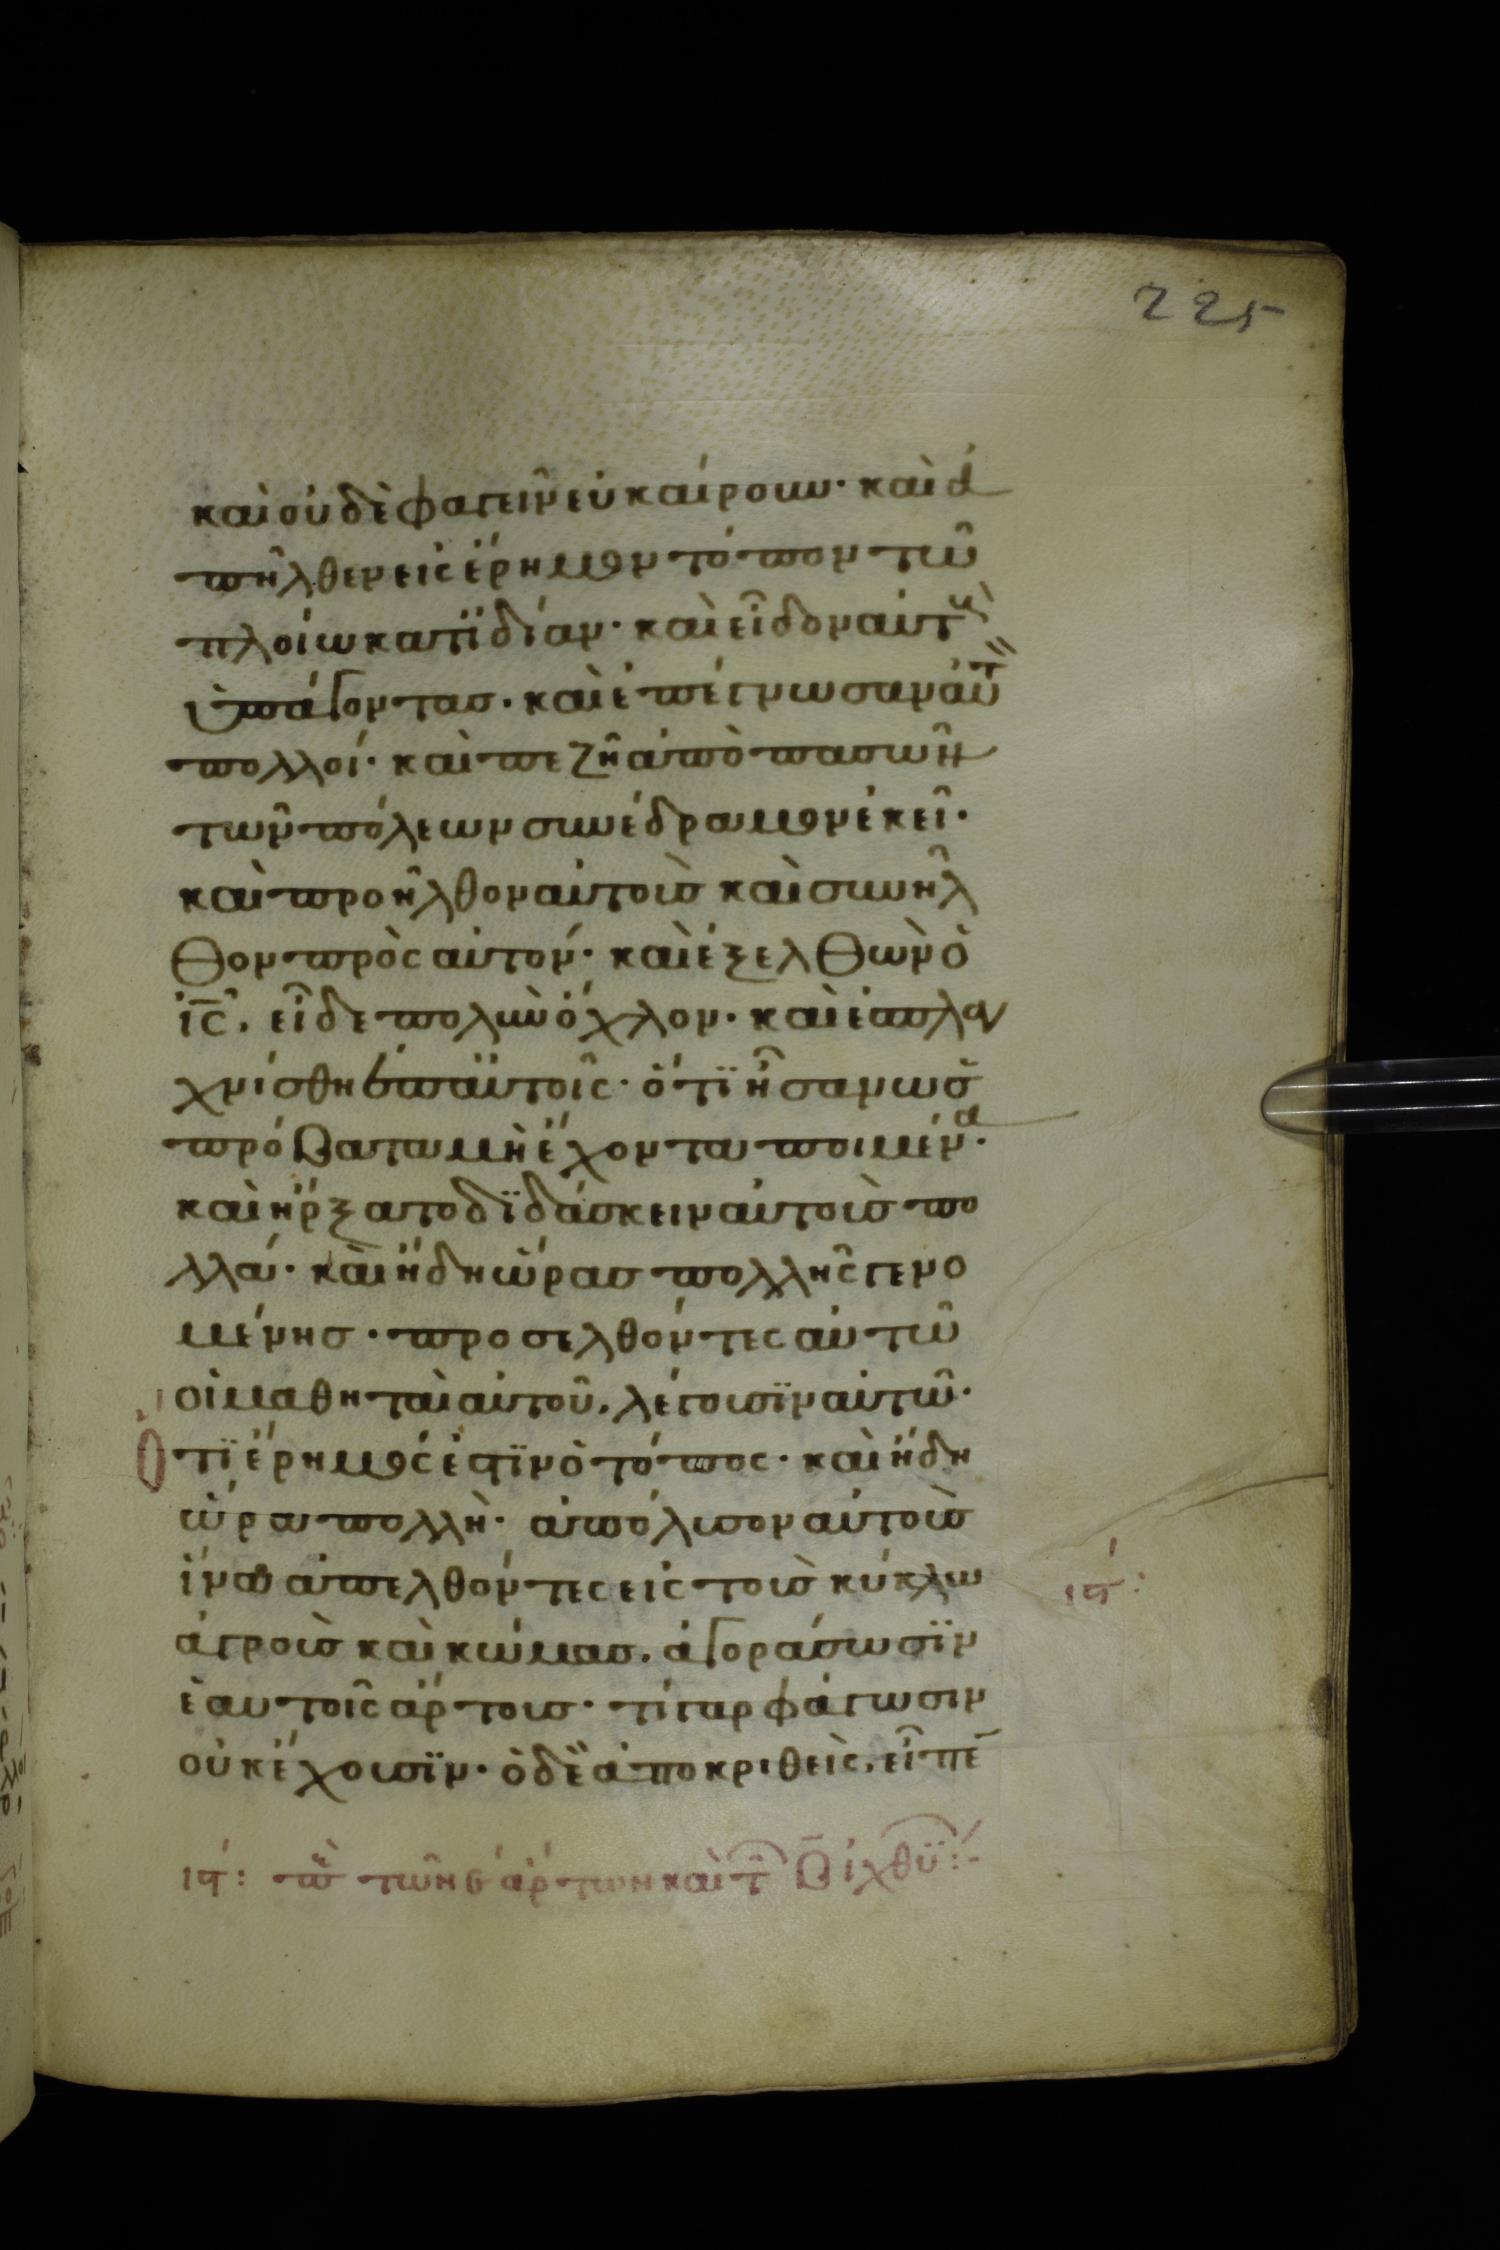 225
καὶ οὐδὲ φαγεῖν εὐκαίρουν· καὶ ἀ
πῆλθεν εἰς ἔρημον τόπον τῶ
πλοίω κατϊδίαν· καὶ εἶδον αὐτοὺς
ὑπάγοντας· καὶ ἐπέγνωσαν αὐτ
πολλοί· καὶ πεζῆ ἀπὸ πασῶν
τῶν πόλεων συνέδραμον ἐκεῖ·
καὶ προῆλθον αὐτοὺς καὶ συνῆλ
θον πρὸς αὐτόν· καὶ ἐξελθὼν ὁ
ι̅ς̅. εἶδε πολὺν ὄχλον· καὶ ἐσπλαγ
χνίσθη ἐπ αὐτοῖς· ὅτϊ ἦσαν ὡς
πρόβατα μὴ ἔχοντα ποιμένα·
καὶ ἤρξατο δϊδάσκειν αὐτοὺς πο
λλά· καὶ ἤδη ὥρας πολλῆς γενο
μένης· προσελθόντες αὐτῶ
οἱ μαθηταὶ αὐτοῦ, λέγουσϊν αὐτῶ·
Ὅτϊ ἔρημός ἐστϊν ὁ τόπος· καὶ ἤδη
ὥρα πολλὴ· ἀπόλυσον αὐτοὺς
ἵνα ἀπελθόντες εἰς τοὺς κύκλω
ἀγροὺς καὶ κώμας, ἀγοράσωσϊν
ἑαυτοῖς ἄρτους· τί γαρ φάγωσιν
οὐκ ἔχουσϊν· ὁ δὲ ἀποκριθεὶς, εἶπε̅
ις΄:
ις΄: π τῶν ε΄ ἄρτων καὶ τ β̅ ἰχθύ:-